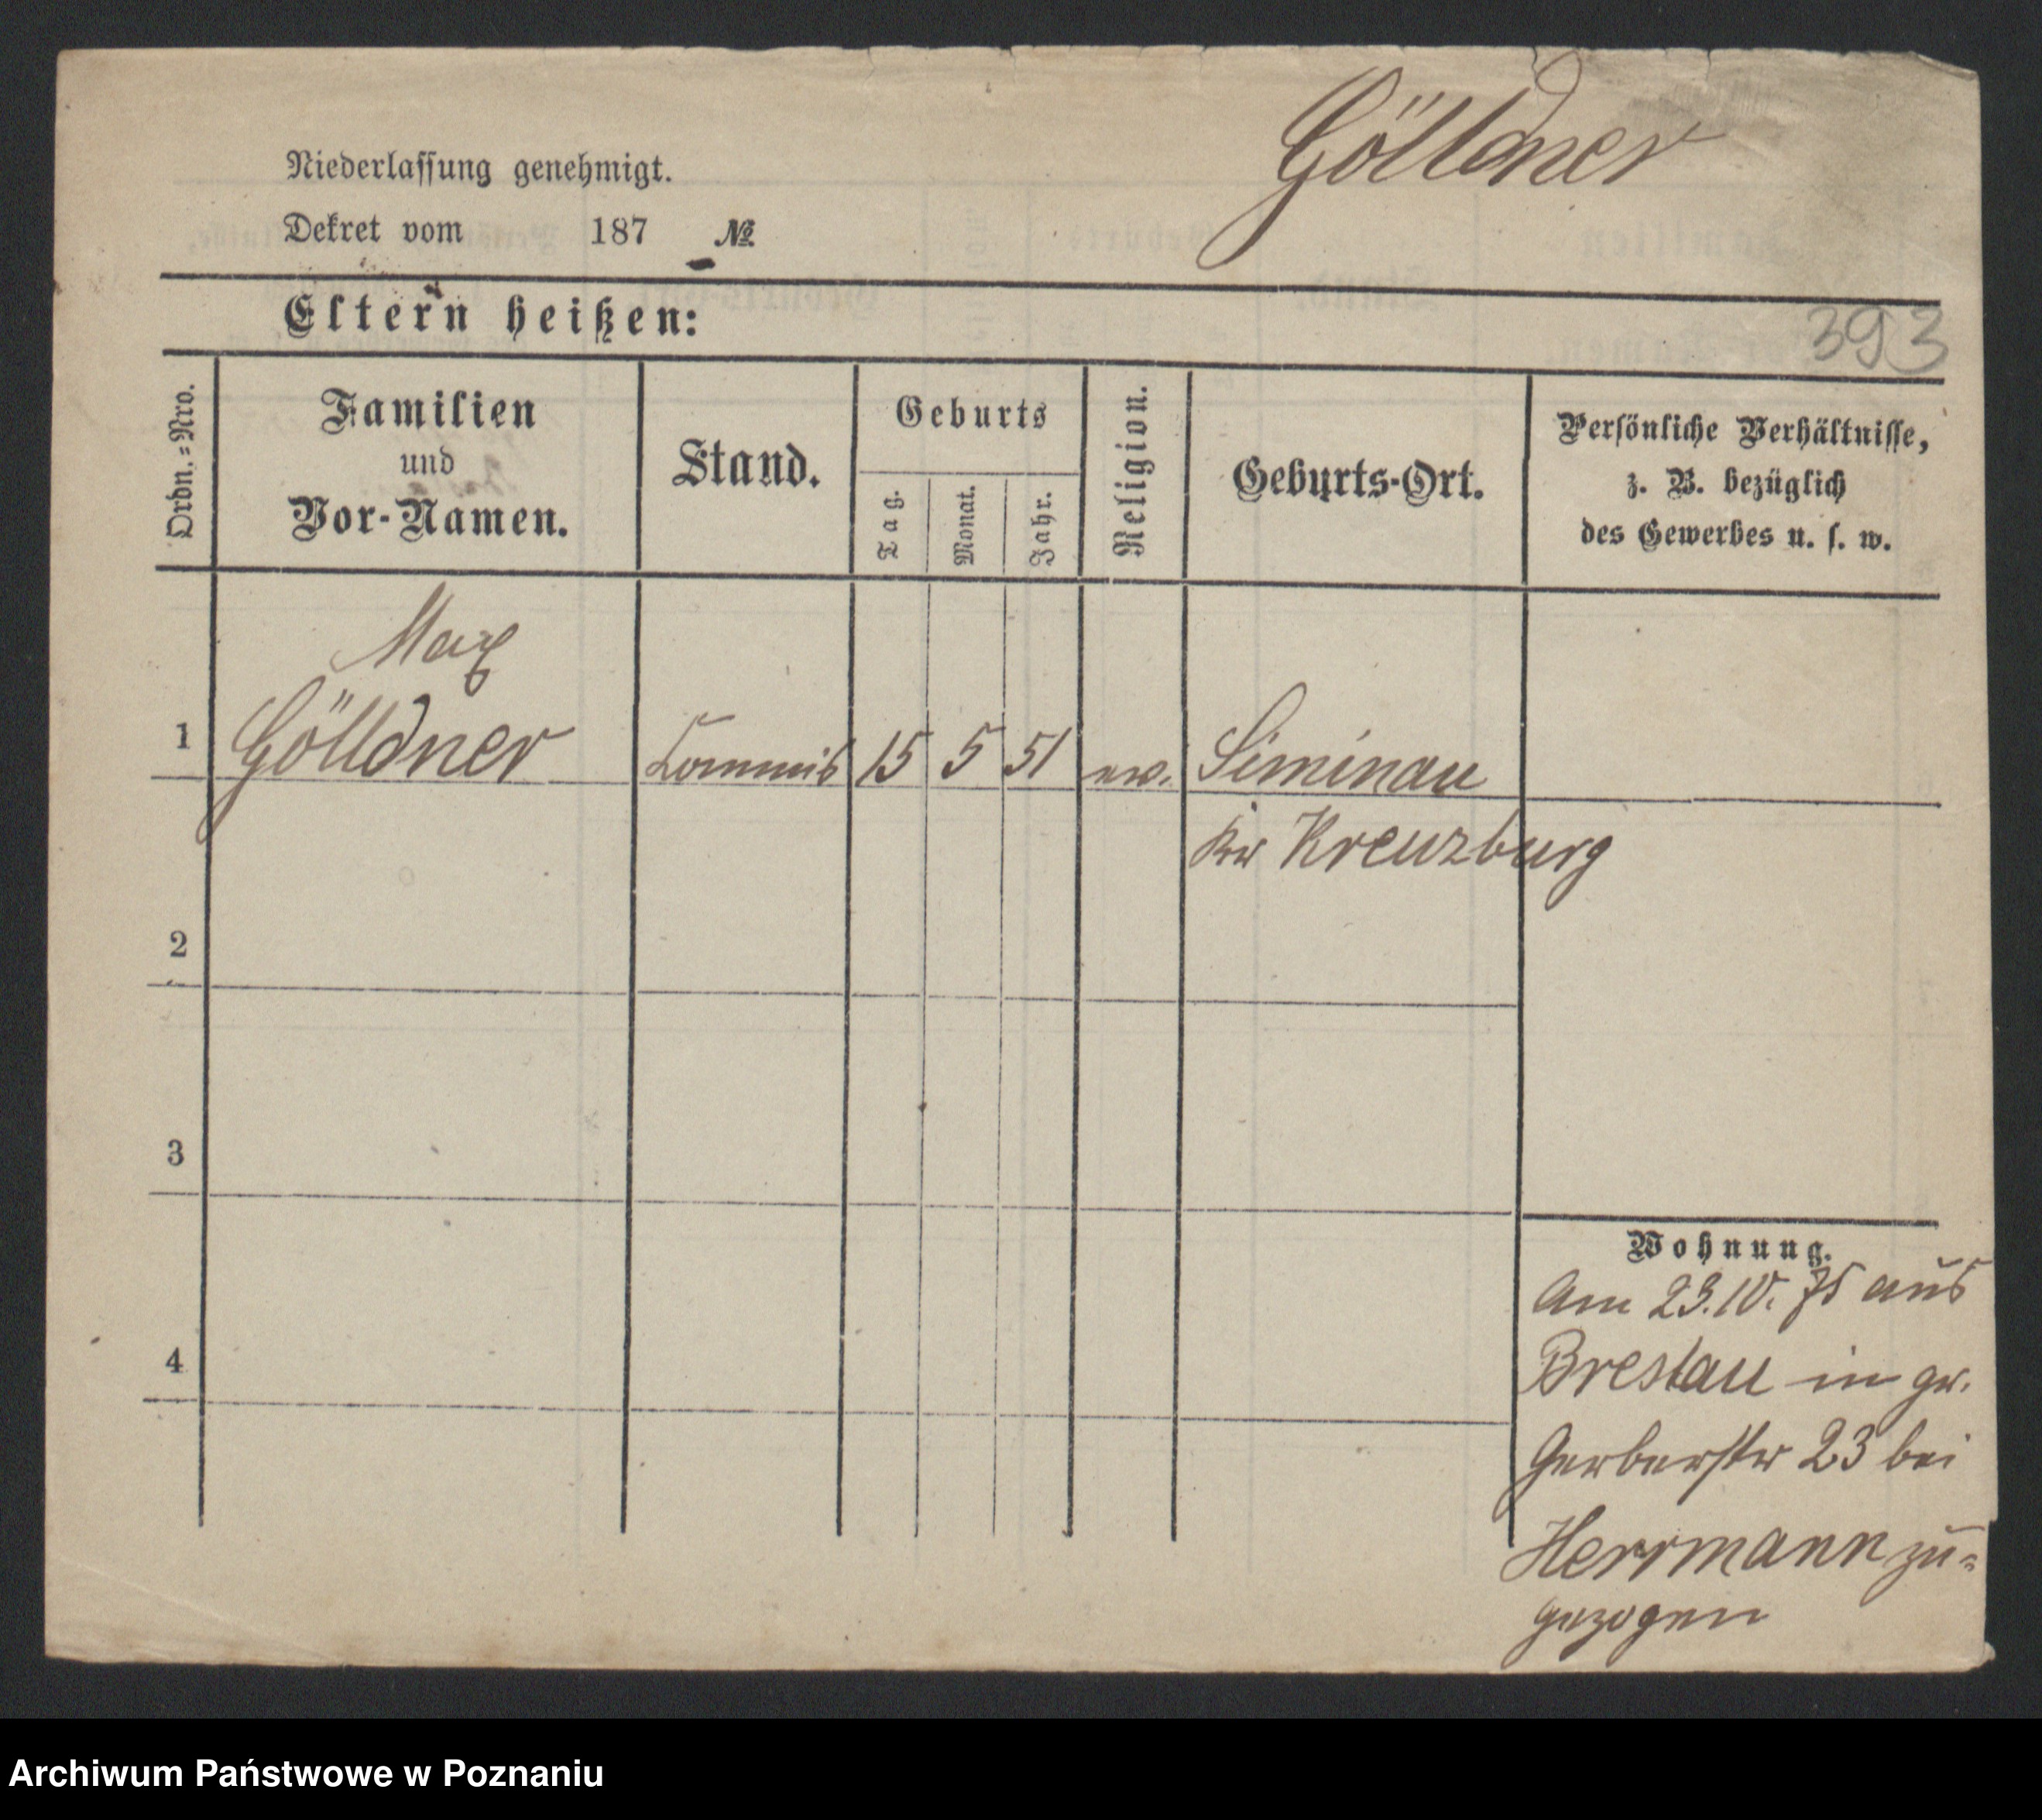 Göldner
Niederlassung genehmigt.
Dekret vom 187 №
Eltern heißen:
393
Ordn.-Nro.
Familien
und
Vor-Namen.
Stand.
Geburts
Tag.
Monat.
Jahr.
Religion.
Geburts-Ort.
Persönliche Verhältnisse,
z. B. bezüglich
des Gewerbes u. s. w.
Max
1 Gölldner Commis 15 5 51 ev. Simmenau
Kr Kreuzburg
2
3
4
Wohnung.
Am 23.10. 75 aus
Breslau in gr.
Gerberstr 23 bei
Herrmann zu=
gezogen
Archiwum Państwowe w Poznaniu